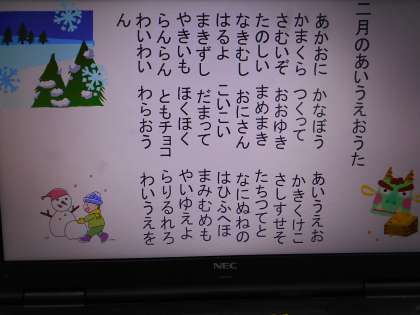 二月のあいうえおうた
あかおに かなぼう あいうえお
かまくら つくって かきくけこ
さむいぞ おおゆき さしすせそ
たのしい まめまき たちつてと
なきむし おにさん なにぬねの
はるよ こいこい はひふへほ
まきずし だまって まみむめも
やきいも ほくほく やいゆえよ
らんらん ともチョコ らりるれろ
わいわい わらおう わいうえを
ん
NEC